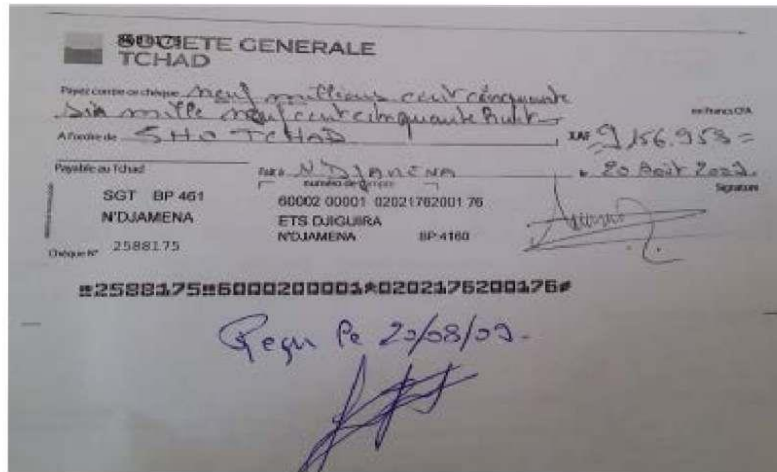 SOCIETE GENERALE
TCHAD
Payez contre ce chèque neuf millions cent cinquante
six mille neuf cent cinquante huit
en Francs CFA
A l'ordre de SHO TCHAD XAF 9 156.958 =
Payable au Tchad
N'DJAMENA 20 Août
numéro de compte
Signature
SGT BP 461
N'DJAMENA
60002 00001 02021762001 76
ETS DJIGUIRA
N'DJAMENA BP:4160
Chèque N° 2588175
2588175 6000200001 0202176200176
Reçu le 20/08/09.